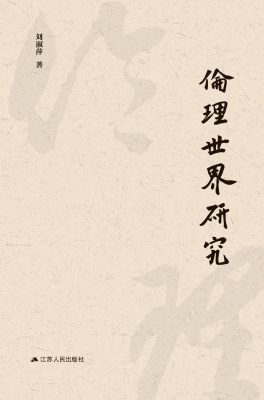 刘淑萍 著
倫理世界研究
江苏人民出版社